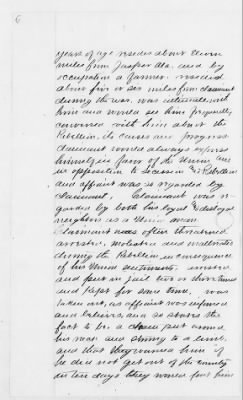 6
years of age resides about Eleven
miles from Jasper Ala. and by
occupation a farmer. resided
about five or six miles from claimant
during the war, was intimate with
him and would see him frequently
conversed with him about the
Rebellion, its causes and progress
claimant would always express
himself in favor of the Union and
in opposition to secession & Rebellion
and affiant was so regarded by
claimant, claimant was re-
garded by both his loyal & disloyal
neighbors as a Union man
Claimant was often threatened
arrested, molested and maltreated
during the Rebellion in consequence
of his Union sentiments. arrested
and put in jail two or three times
and kept for some time, was
taken out, as affiant was informed
and believes, and so states the
fact to be a rope put around
his neck and swung to a limb,
and that they warned him if
he did not get out of the County
in ten days they would put him